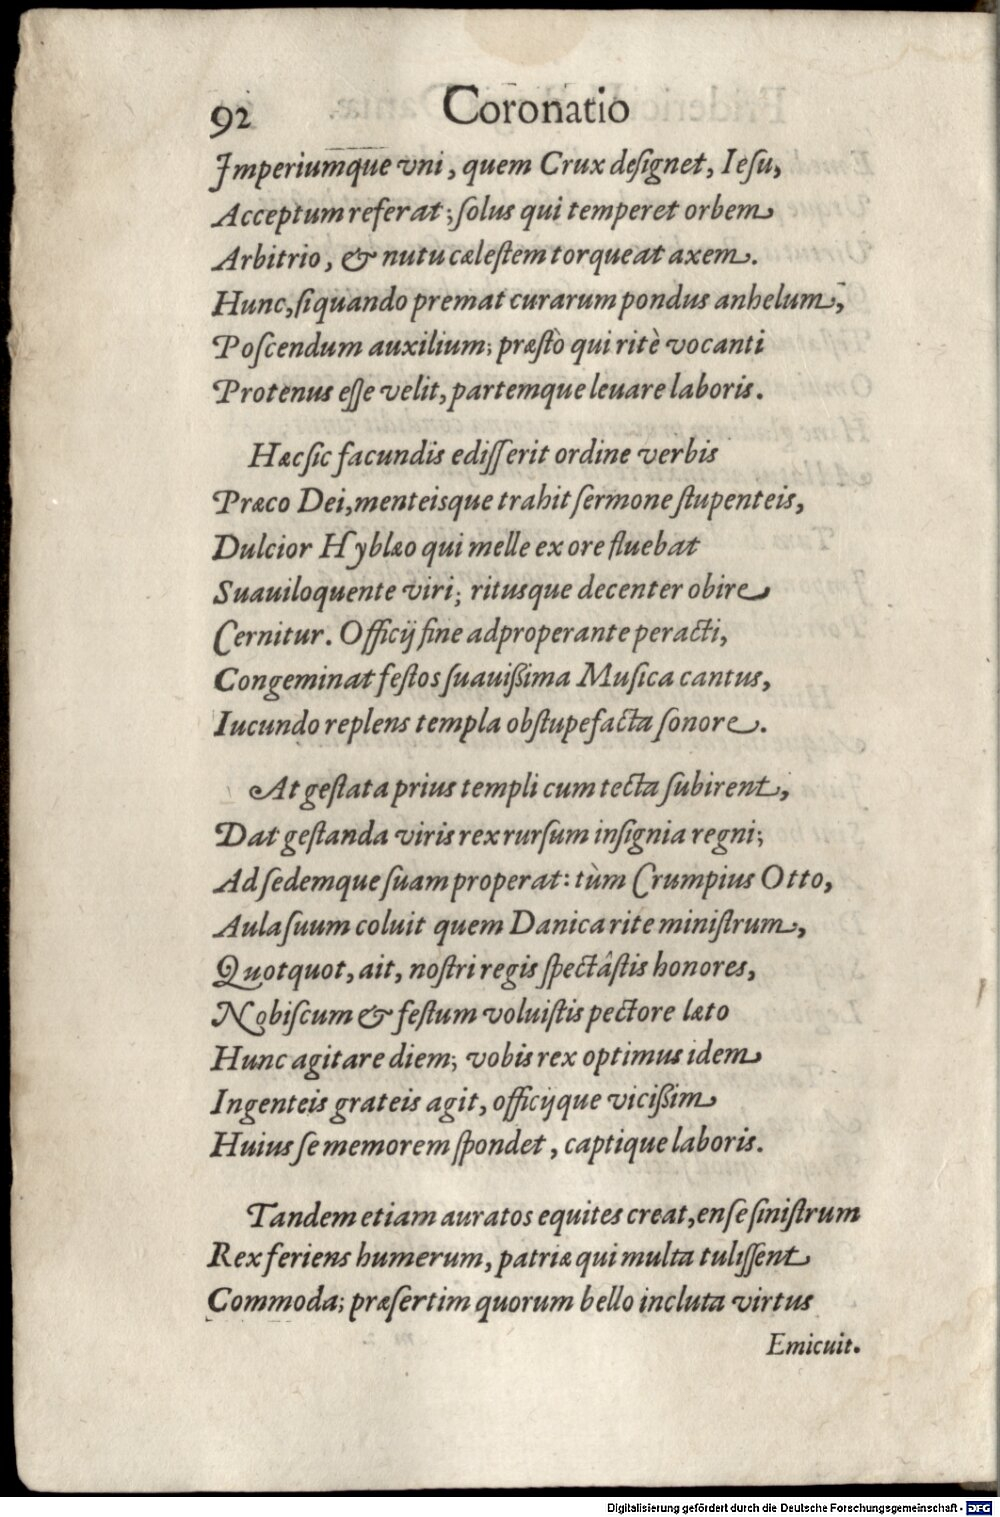 92 Coronatio
Imperiumque vni, quem Crux deſignet, Ieſu,
Acceptum referat; ſolus qui temperet orbem
Arbitrio, & nutu cæleſtem torqueat axem.
Hunc, ſiquando premat curarum pondus anhelum,
Poſcendum auxilium; præſtò qui ritè vocanti
Protenus eſſe velit, partemque leuare laboris.
Hæc ſic facundis ediſſerit ordine verbis
Præco Dei, menteisque trahit ſermone ſtupenteis,
Dulcior Hyblæo qui melle ex ore fluebat
Suauiloquente viri; ritusque decenter obire
Cernitur. Officij fine adproperante peracti,
Congeminat feſtos ſuauißima Muſica cantus,
Iucundo replens templa obſtupefacta ſonore.
At geſtata prius templi cum tecta ſubirent,
Dat geſtanda viris rex rurſum inſignia regni;
Ad ſedemque ſuam properat: tùm Crumpius Otto,
Aula ſuum coluit quem Danica rite miniſtrum,
Quotquot, ait, noſtri regis ſpectâſtis honores,
Nobiſcum & feſtum voluiſtis pectore læto
Hunc agitare diem; vobis rex optimus idem
Ingenteis grateis agit, officijque vicißim
Huius ſe memorem ſpondet, captique laboris.
Tandem etiam auratos equites creat, enſe ſiniſtrum
Rex feriens humerum, patriæ qui multa tuliſſent
Commoda; præſertim quorum bello incluta virtus
Emicuit.
Digitalisierung gefördert durch die Deutsche Forschungsgemeinschaft - DFG